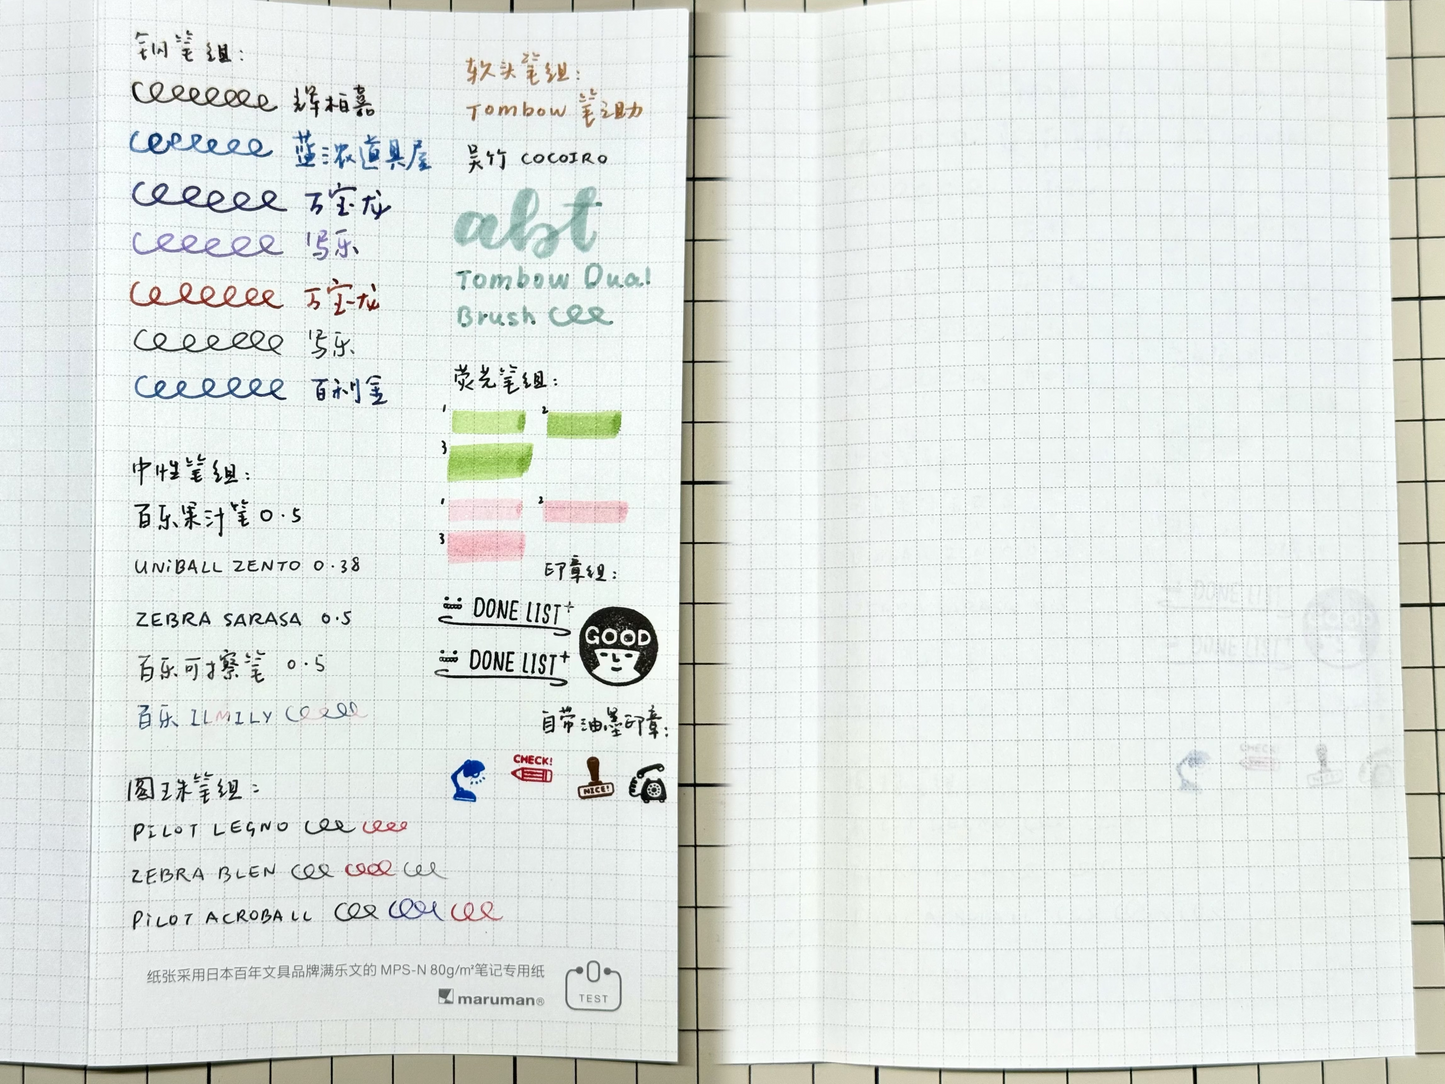 钢笔组：
辉柏嘉
蓝浓道具屋
万宝龙
写乐
万宝龙
写乐
百利金
中性笔组：
百乐果汁笔 0.5
UNIBALL ZENTO 0.38
ZEBRA SARASA 0.5
百乐可擦笔 0.5
百乐 ILMILY
圆珠笔组：
PILOT LEGNO
ZEBRA BLEN
PILOT ACROBALL
软头笔组：
Tombow 笔之助
吴竹 COCOIRO
abt
Tombow Dual
Brush
荧光笔组：
1 2
3
1 2
3
印章组：
DONE LIST+
GOOD
DONE LIST+
自带油墨印章：
CHECK!
NICE!
纸张采用日本百年文具品牌满乐文的 MPS-N 80g/m²笔记专用纸
maruman®
TEST